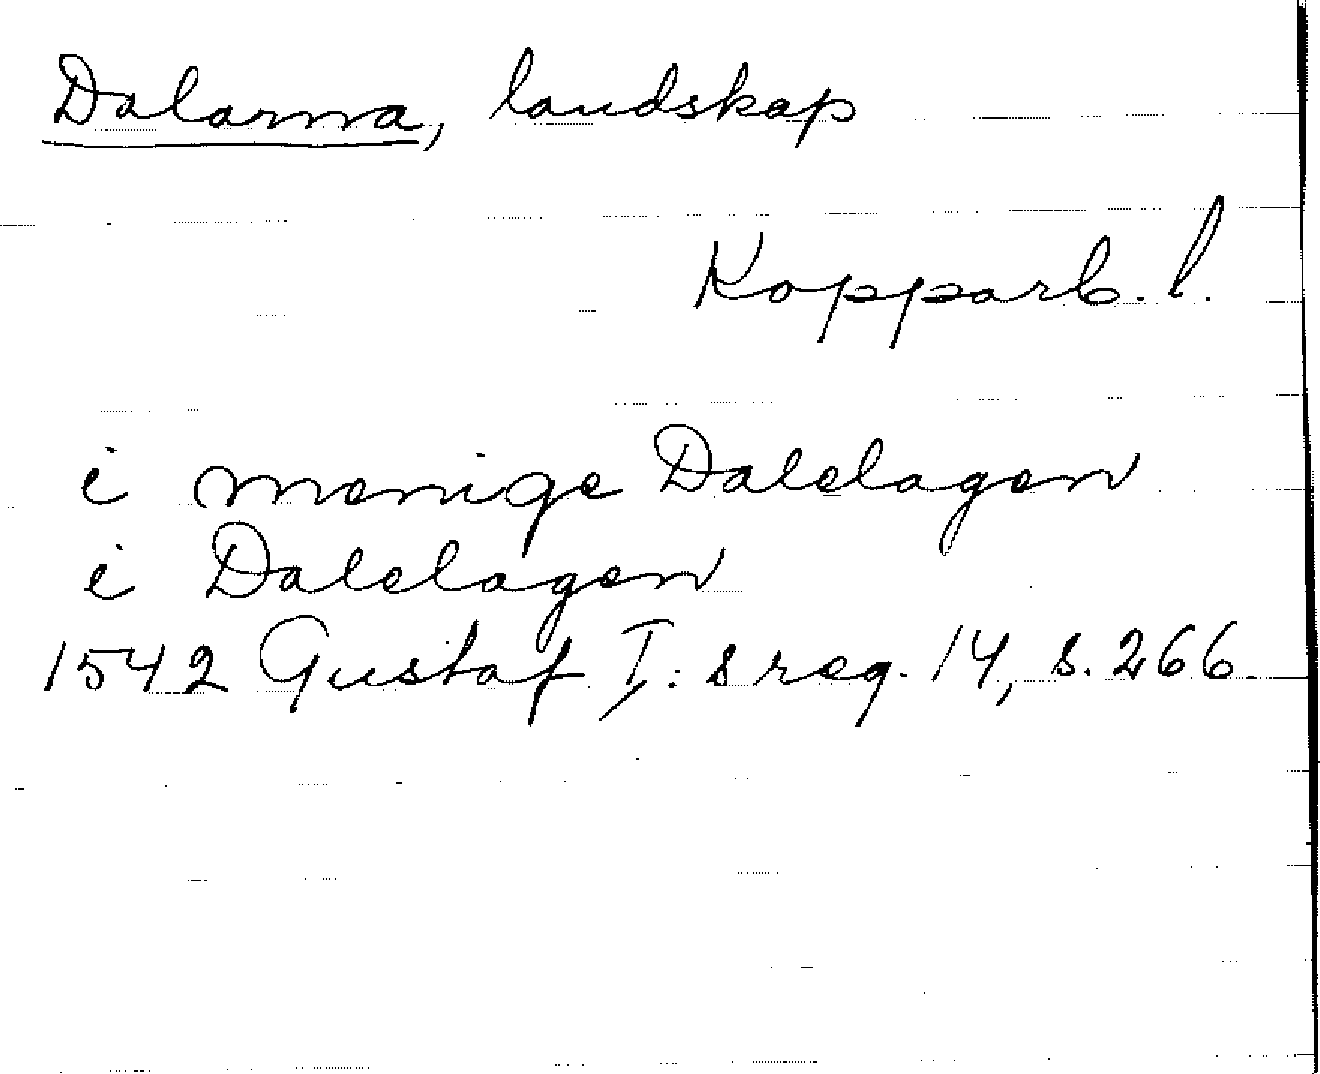 Dalarna, landskap
Kopparb. l.
i menige Dalelagen
i Dalelagen
1542 Gustaf I:s reg. 14, s. 266.